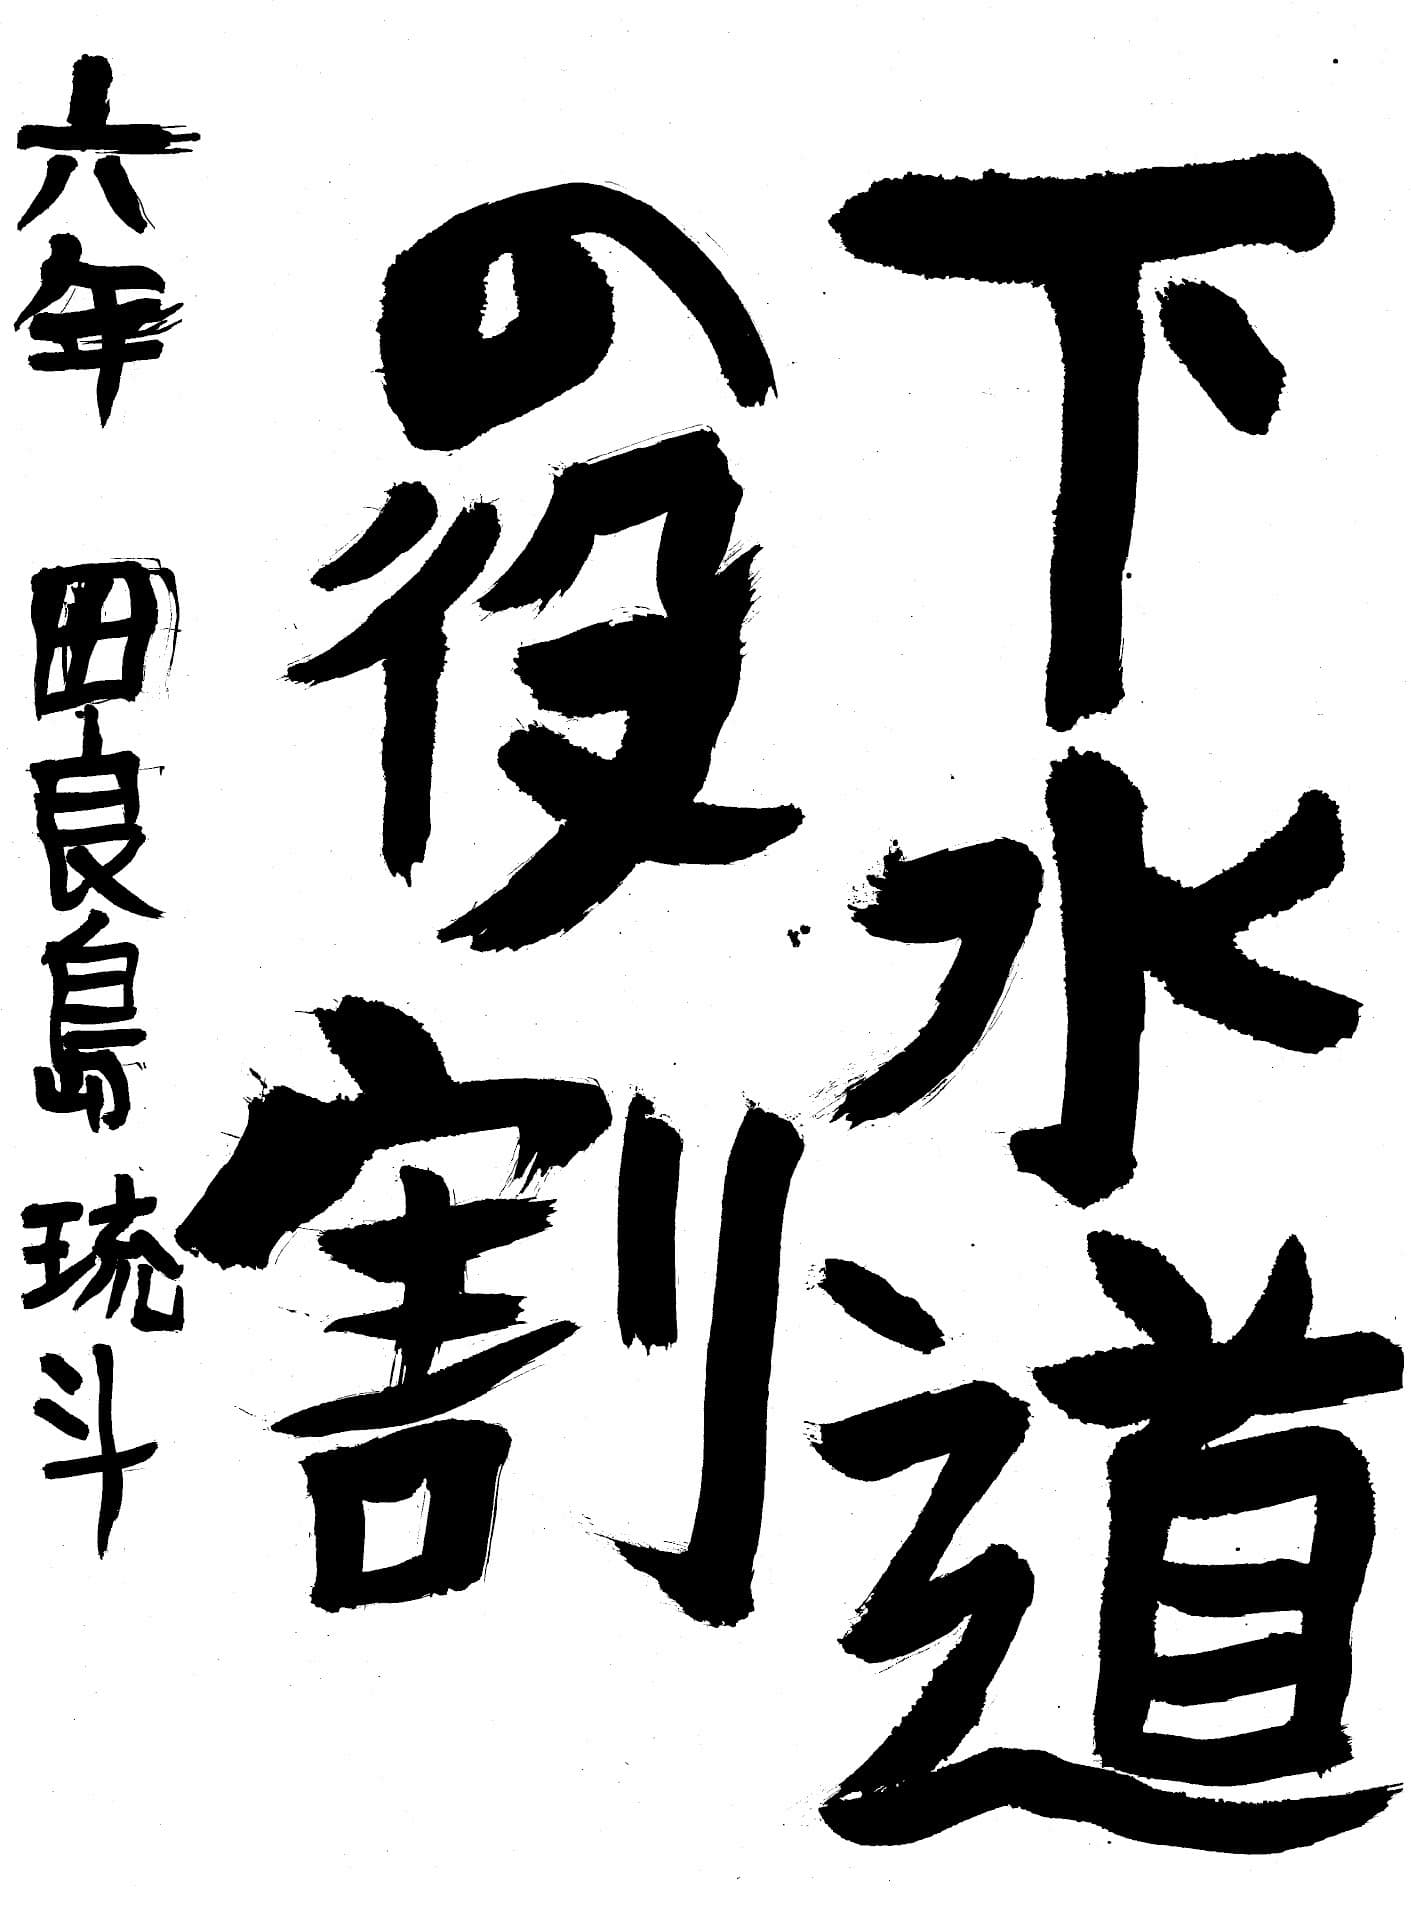 下水道
の役割
六年 田良島 琉斗